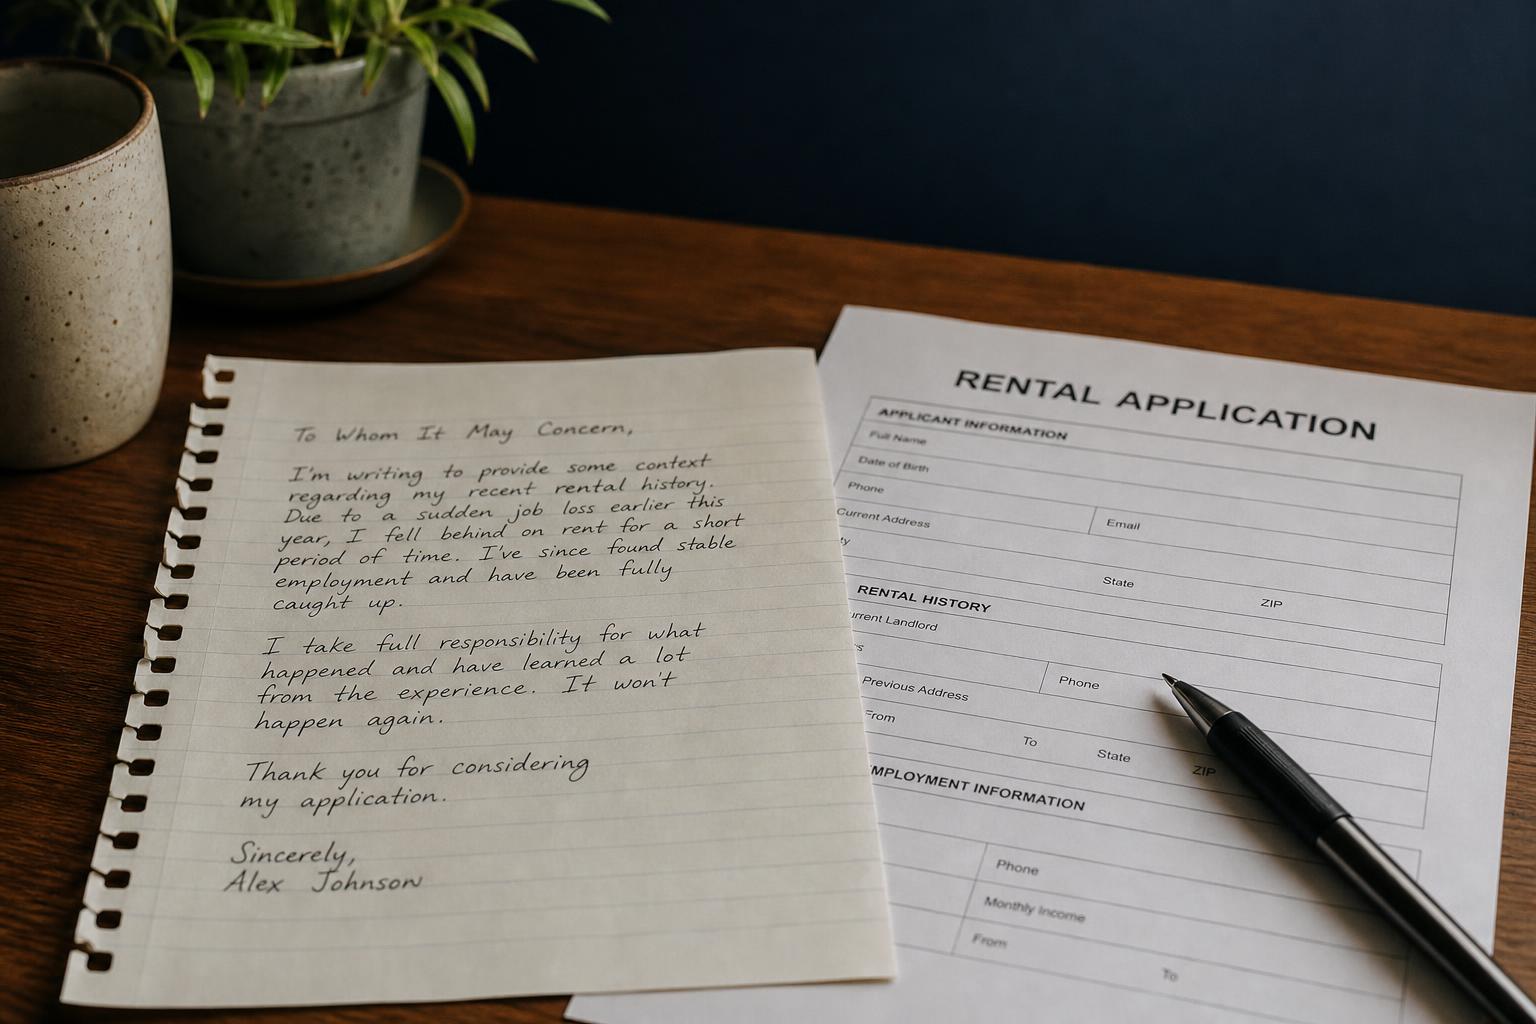 To Whom It May Concern,
I'm writing to provide some context
regarding my recent rental history.
Due to a sudden job loss earlier this
year, I fell behind on rent for a short
period of time. I've since found stable
employment and have been fully
caught up.
I take full responsibility for what
happened and have learned a lot
from the experience. It won't
happen again.
Thank you for considering
my application.
Sincerely,
Alex Johnson
RENTAL APPLICATION
APPLICANT INFORMATION
Full Name
Date of Birth
Phone
Current Address Email
ty
State ZIP
RENTAL HISTORY
urrent Landlord
rs
Phone
Previous Address
From To State ZIP
MPLOYMENT INFORMATION
Phone
Monthly Income
From To